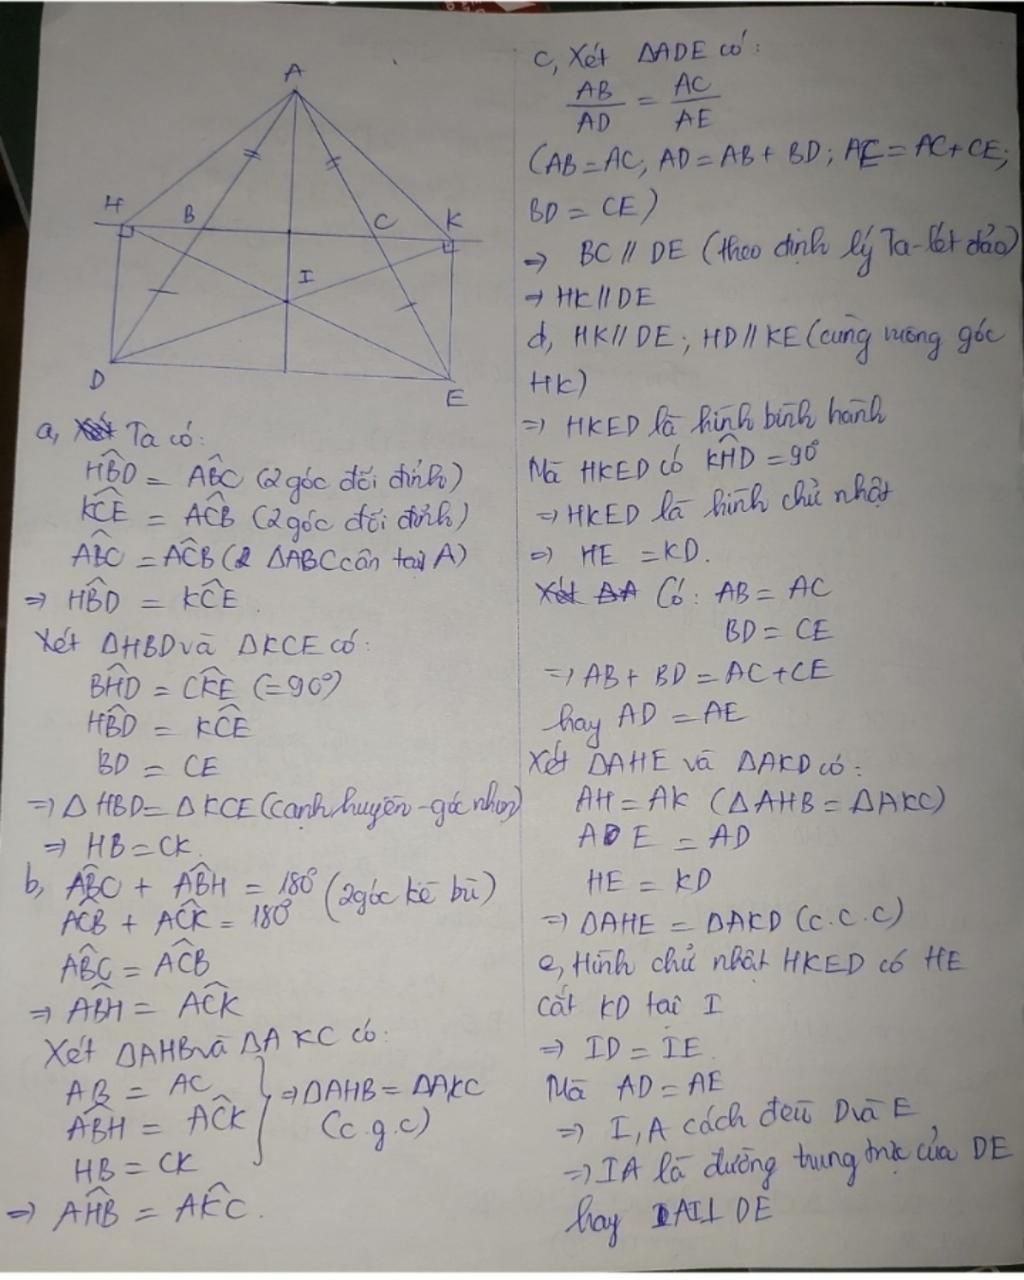 A
H
B
C
K
I
D
E
a, Ta có:
HB̂D = AB̂C (2 góc đối đỉnh)
KĈE = AĈB (2 góc đối đỉnh)
AB̂C = AĈB (ΔABC cân tại A)
=> HB̂D = KĈE.
Xét ΔHBD và ΔKCE có:
BĤD = CK̂E (=90°)
HB̂D = KĈE
BD = CE
=> Δ HBD = Δ KCE (cạnh huyền - góc nhọn)
=> HB = CK.
b, AB̂C + AB̂H = 180° (2 góc kề bù)
AĈB + AĈK = 180°
AB̂C = AĈB
=> AB̂H = AĈK
Xét ΔAHB và ΔAKC có:
AB = AC
AB̂H = AĈK
HB = CK
=> ΔAHB = ΔAKC
(c.g.c)
=> AĤB = AK̂C.
c, Xét ΔADE có:
AB/AD = AC/AE
(AB = AC; AD = AB + BD; AE = AC + CE;
BD = CE)
=> BC // DE (theo định lý Ta-lét đảo)
=> HK // DE
d, HK // DE; HD // KE (cùng vuông góc
HK)
=> HKED là hình bình hành
Mà HKED có KĤD = 90°
=> HKED là hình chữ nhật
=> HE = KD.
Có: AB = AC
BD = CE
=> AB + BD = AC + CE
hay AD = AE
Xét ΔAHE và ΔAKD có:
AH = AK (ΔAHB = ΔAKC)
AE = AD
HE = KD
=> ΔAHE = ΔAKD (c.c.c)
e, Hình chữ nhật HKED có HE
cắt KD tại I
=> ID = IE.
Mà AD = AE
=> I, A cách đều D và E
=> IA là đường trung trực của DE
hay AI ⊥ DE